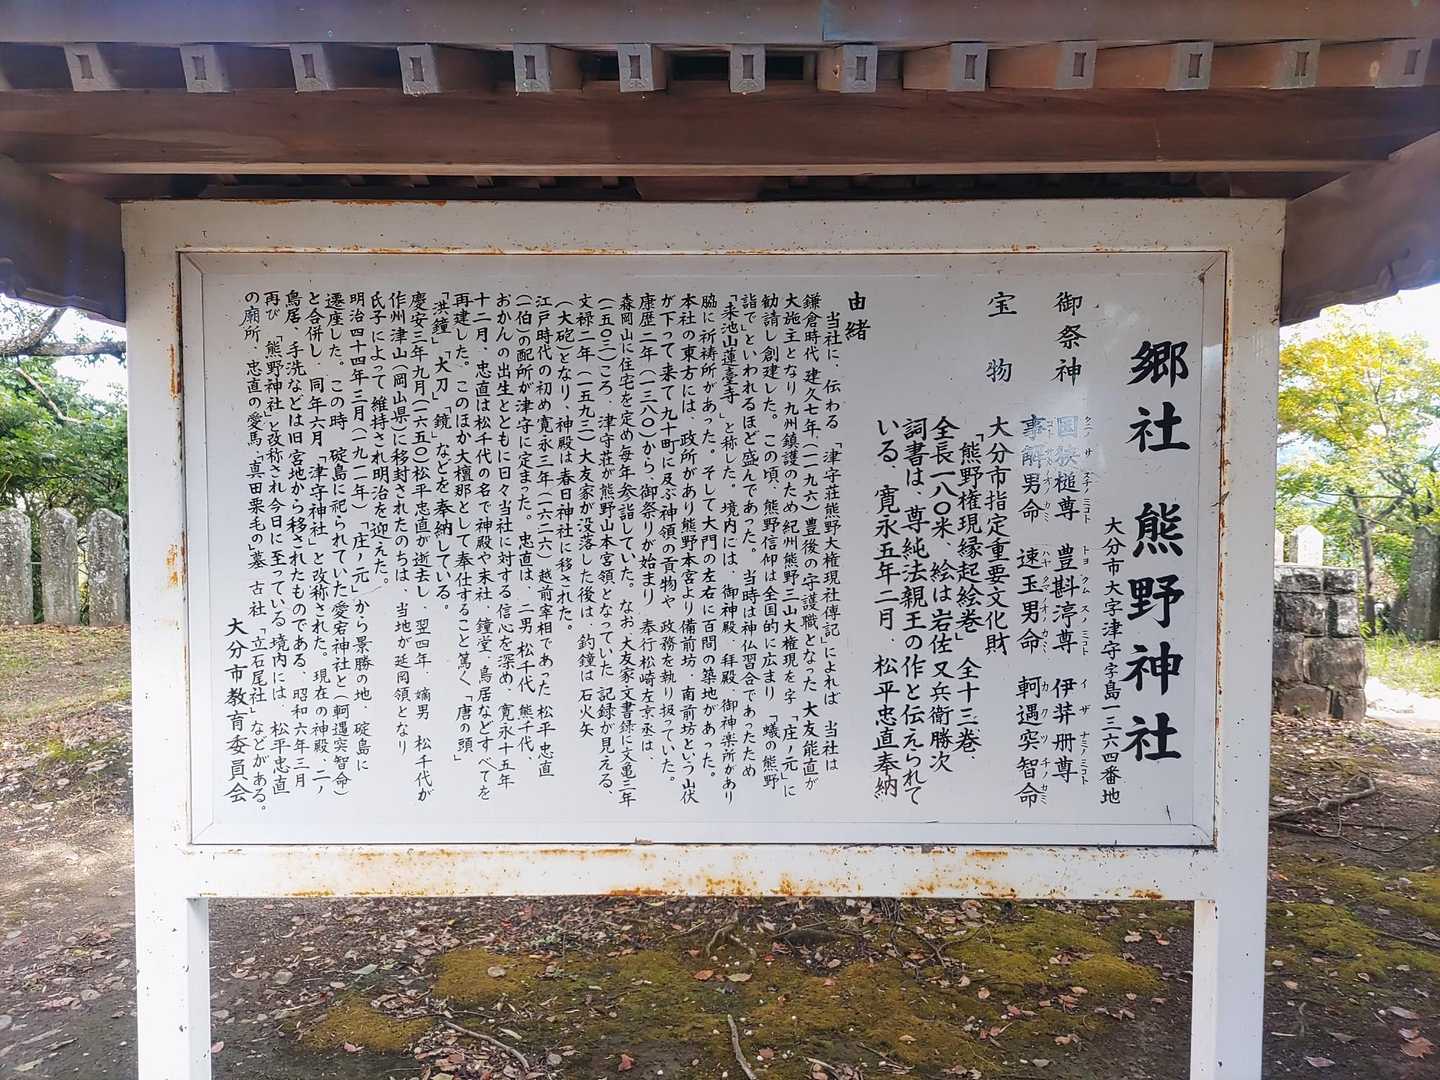 郷社 熊野神社
大分市大字津守字島一三六四番地
御祭神
クニノサズチノミコト トヨクムスノミコト イザナミノミコト
国狭槌尊 豊斟渟尊 伊弉冊尊
コトサカノオノカミ ハヤタマノオノカミ カクツチノカミ
事解男命 速玉男命 軻遇突智命
宝物
大分市指定重要文化財
「熊野権現縁起絵巻」全十三巻、
全長一八〇米、絵は岩佐又兵衛勝次
詞書は、尊純法親王の作と伝えられて
いる、寛永五年二月、松平忠直奉納
由緒
当社に、伝わる「津守荘熊野大権現社傳記」によれば 当社は
鎌倉時代 建久七年(一一九六)豊後の守護職となった 大友能直が
大施主となり 九州鎮護のため 紀州熊野三山大権現を 字「庄ノ元」に
勧請し創建した。この頃、熊野信仰は全国的に広まり 「蟻の熊野
詣で」といわれるほど盛んであった。当時は神仏習合であったため
「来池山蓮臺寺」と称した。境内には、御神殿、拜殿、御神楽所があり
脇に祈祷所があった。そして大門の左右に百間の築地があった。
本社の東方には、政所があり熊野本宮より備前坊、南前坊という山伏
が下って来て九十町に及ぶ神領の貢物や、政務を執り扱っていた。
康歴二年(一三八〇)から、御祭りが始まり 奉行松崎左京丞は、
森岡山に住宅を定め毎年参詣していた。なお、大友家文書録に文亀三年
(一五〇三)ころ 津守荘が熊野山本宮領となっていた 記録が見える、
文禄二年(一五九三)大友家が没落した後は、釣鐘は石火矢
(大砲)となり、神殿は春日神社に移された。
江戸時代の初め寛永三年(一六二六)越前宰相であった 松平忠直
(一伯)の配所が津守に定まった。忠直は、二男 松千代、熊千代、
おかんの出生とともに日々当社に対する信心を深め、寛永十五年
十二月、忠直は松千代の名で神殿や末社、鐘堂、鳥居などすべてを
再建した。このほか大檀那として奉仕すること篤く、「唐の頭」
「洪鐘」「大刀」「鏡」などを奉納している。
慶安三年九月(一六五〇)松平忠直が逝去し、翌四年、嫡男 松千代が
作州津山(岡山県)に移封されたのちは、当地が延岡領となり
氏子によって維持され明治を迎えた。
明治四十四年三月(一九一一年)「庄ノ元」から景勝の地、碇島に
遷座した。この時、碇島に祀られていた愛宕神社と(軻遇突智命)
と合併し、同年六月「津守神社」と改称された。現在の神殿、二ノ
鳥居、手洗などは旧宮地から移されたものである、昭和六年三月
再び「熊野神社」と改称され今日に至っている 境内には 松平忠直
の廟所、忠直の愛馬「真田栗毛の」墓 古社「立石尾社」などがある。
大分市教育委員会